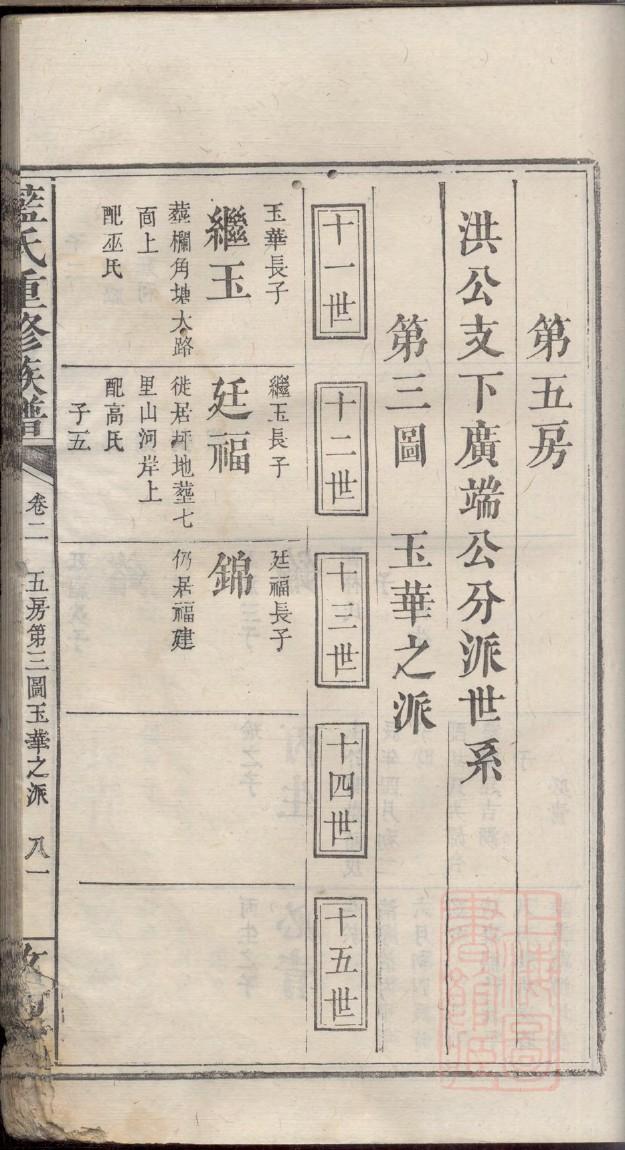 第五房
洪公支下廣端公分派世系
第三圖 玉華之派
十一世
十二世
十三世
十四世
十五世
玉華長子
繼玉
塟欄角塘大路
面上
配巫氏
繼玉長子
廷福
徙居坪地塟七
里山河岸上
配高氏
子五
廷福長子
錦
仍居福建
藍氏重修族譜
卷二
五房第三圖玉華之派
八一